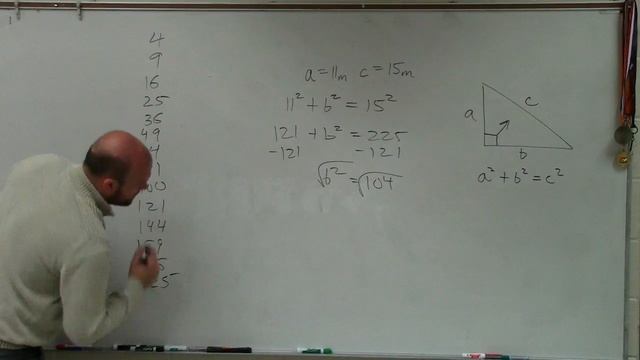 4
9
16
25
36
49
4
1
00
121
144
25
a=11m c=15m
11² + b² = 15²
121 + b² = 225
-121 -121
√b² = √104
a
c
b
a² + b² = c²